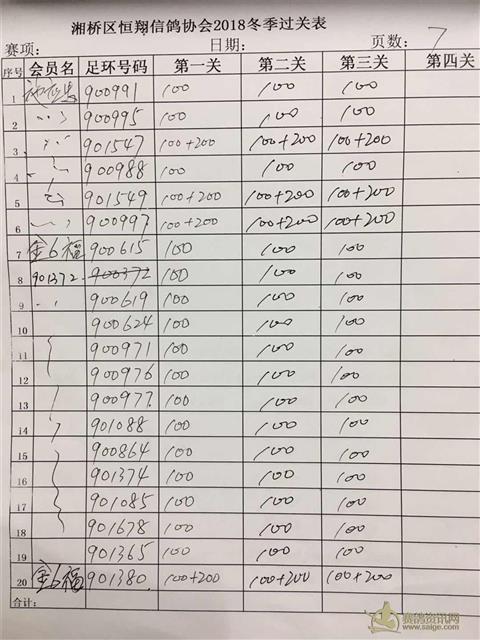 湘桥区恒翔信鸽协会2018冬季过关表
赛项: 日期: 页数: 7
序号 会员名 足环号码 第一关 第二关 第三关 第四关
1 900991 100 100 100
2 900995 100 100 100
3 901547 100+200 100+200 100+200
4 900988 100 100 100
5 901549 100+200 100+200 100+200
6 900997 100+200 100+200 100+200
7 金6福 900615 100 100 100
8 901372 900372 100 100 100
9 900619 100 100 100
10 900624 100 100 100
11 900971 100 100 100
12 900976 100 100 100
13 900977 100 100 100
14 901088 100 100 100
15 900864 100 100 100
16 901374 100 100 100
17 901085 100 100 100
18 901678 100 100 100
19 901365 100 100 100
20 金6福 901380 100+200 100+200 100+200
合计:
赛鸽资讯网
www.saige.com